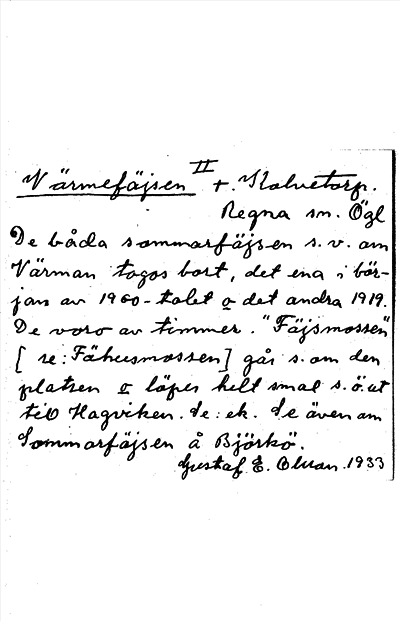 II
Värmefäjsen t. Kalvetorp.
Regna sn. Ögl
De båda sommarfäjsen s.v. om
Värman togos bort, det ena i bör-
jan av 1900-talet o det andra 1919.
De voro av timmer. "Fäjsmossen"
[se: Fähusmossen] går s. om den
platsen o löper helt smal s.ö. ut
till Hagviken. Se: ek. Se även om
Sommarfäjsen å Björkö.
Gustaf E. Olsson. 1933